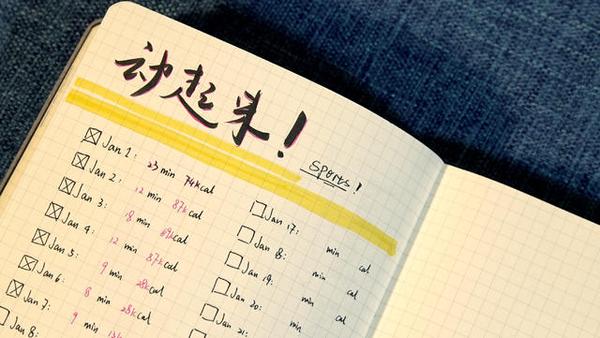 动起来!
Sports!
Jan 1: 23 min 74kcal
Jan 2: 12 min 87kcal
Jan 3: 18 min kcal
Jan 4: 12 min 87kcal
Jan 5: 9 min 28kcal
Jan 6: 8 min 28kcal
Jan 7: 9 min
Jan 8:
Jan 17: min cal
Jan 18: min cal
Jan 19: min cal
Jan 20: min cal
Jan 21: min